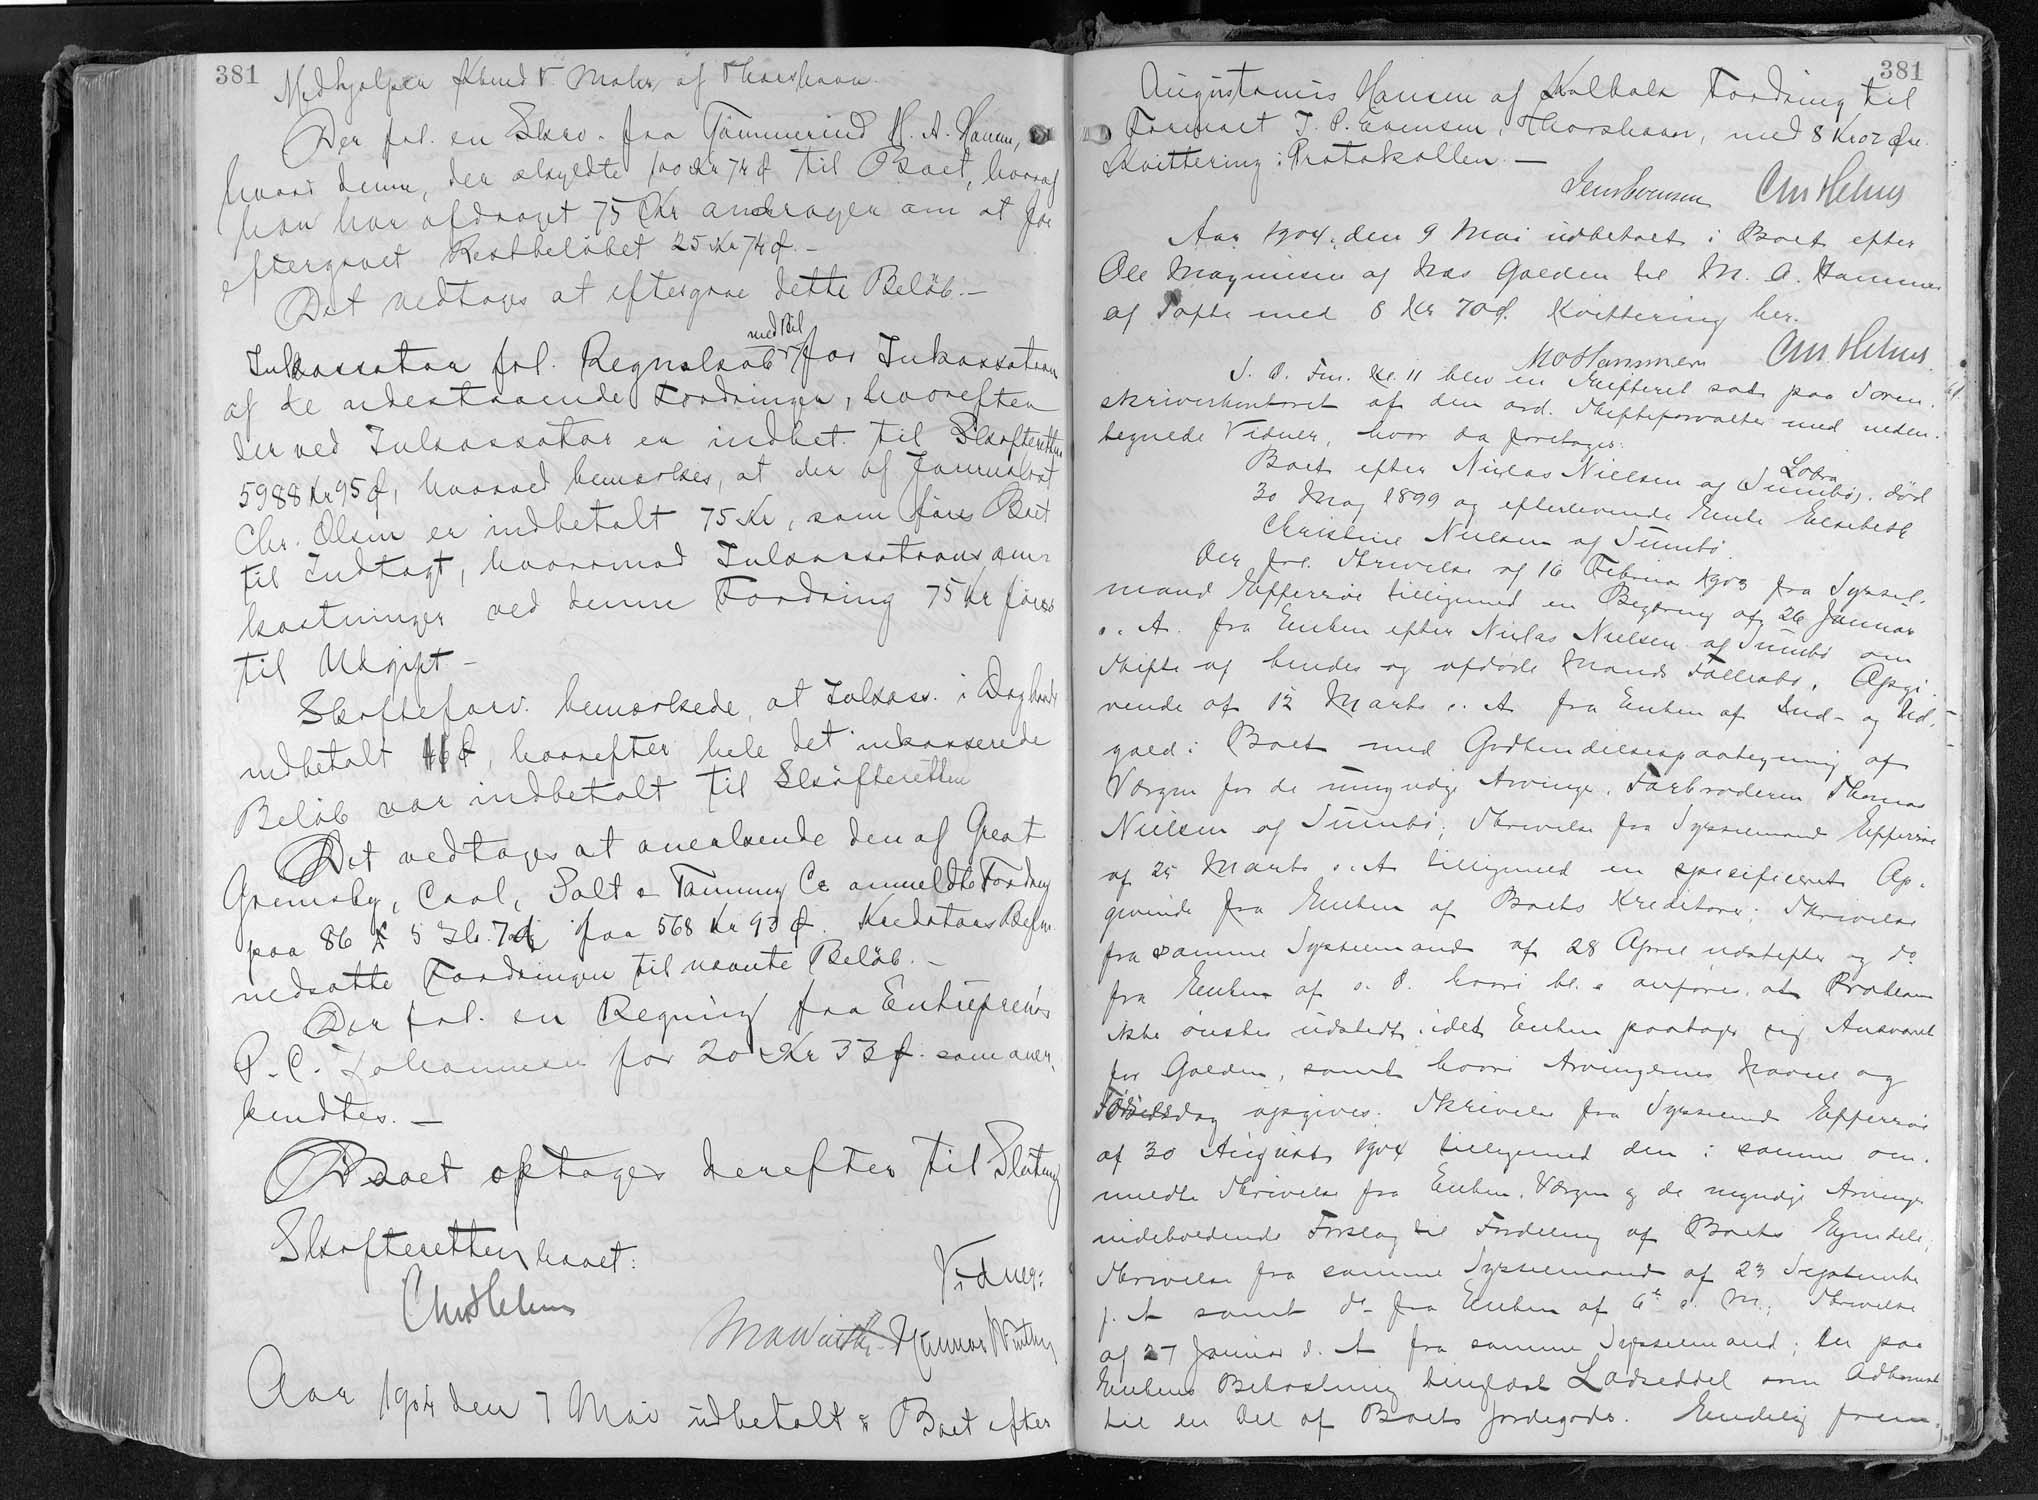 381
Medhjælper Kbmd V. Mohr af Thorshavn.
Der frl. en Skriv. fra Tømmermd H. A. Hansen,
hvori denne, der skyldte 100 Kr 74 Ø til Boet, hvoraf
han har afdraget 75 Kr andrager om at faa
eftergivet Restbeløbet 25 Kr 74 Ø. —
Det vedtages at eftergive dette Beløb. —
Inkassator frl. Regnskab med Bil for Inkassation
af de udestaaende Fordringer, hvorefter
der ved Inkassator er indbet. til Skifteretten
5988 Kr 95 Ø, hvorved bemærkes, at der af Journalist
Chr. Olsen er indbetalt 75 Kr, som føres Boet
til Indtægt, hvorimod Inkassations om-
kostninger ved denne Fordring 75 Kr føres
til Udgift —
Skifteforv. bemærkede, at Inkass. i Dag havde
indbetalt 46 Ø, hvorefter hele det inkasserede
Beløb var indbetalt til Skifteretten
Det vedtages at anerkende den af Great
Grimsby, Coal, Salt & Tanning Co anmeldte Fordring
paa 86 £ 5 Sh. 7 d for 568 Kr 93 Ø. Kreditors Begær.
nedsatte Fordringen til nævnte Beløb. —
Der frl. en Regning fra Entreprenør
P. C. Johannesen for 20 Kr 33 Ø. som aner-
kendtes. —
Boet optages derefter til Slutning
Skifteretten hævet:
Vidner:
Chr Helms
M A Winther Hannes Winther
Aar 1904 den 7 Mai udbetalt i Boet efter
381
Augustinus Hansen af Kolbak Fordring til
Farmact J. P. Evensen, Thorshavn, med 8 Kr 02 Øre.
Kvittering i Protokollen. —
Jens Evensen Chr Helms
Aar 1904, den 9 Mai udbetalt i Boet efter
Ole Magnusen af Næs Gælden til M. O. Hammer
af Tofte med 8 Kr 70 Ø. Kvittering her.
M O Hammer Chr Helms.
S. D. Fm. Kl. 11 blev en Skifteret sat paa Soren-
skriverkontoret af den ord. Skifteforvalter med neden-
tegnede Vidner, hvor da foretoges:
Boet efter Niclas Nielsen af Lobra Sumbø, død
30 Maj 1899 og efterlevende Enke Elsebeth
Christine Nielsen af Sumbø.
Der frl. Skrivelse af 16 Februar 1903 fra Syssel-
mand Effersøe tilligemed en Begæring af 26 Januar
s. A. fra Enken efter Niclas Nielsen af Sumbø om
Skifte af hendes og afdøde Mands Fællesbo, Opgi-
vende af 12 Marts s. A. fra Enken af Ind- og Ud-
gæld i Boet med Godkendelsespaategning af
Værgen for de umyndige Arvinge, Farbroderen Thomas
Nielsen af Sumbø; Skrivelse fra Sysselmand Effersøe
af 25 Marts s. A. tilligemed en specificeret Op-
givende fra Enken af Boets Kreditorer; Skrivelse
fra samme Sysselmand af 28 April udstefter og do
fra Enken af s. D. hvori bl. a anføres, at Proklama
ikke ønskes udstedt, idet Enken paatager sig Ansvaret
for Gælden, samt hvori Arvingernes Navne og
Fødselsdag opgives; Skrivelse fra Sysselmd Effersøe
af 30 August 1904 tilligemed den i samme om-
meldte Skrivelse fra Enken, Værgen og de myndige Arvinge
indeholdende Forslag til Fordeling af Boets Ejendele;
Skrivelse fra samme Sysselmand af 23 September
f. A. samt do fra Enken af 6te s. M.; Skrivelse
af 27 Januar d. A. fra samme Sysselmand; en paa
Enkens Bekostning tinglæst Lodseddel som Adkomst
til en Del af Boets Jordegods. Endelig frem-